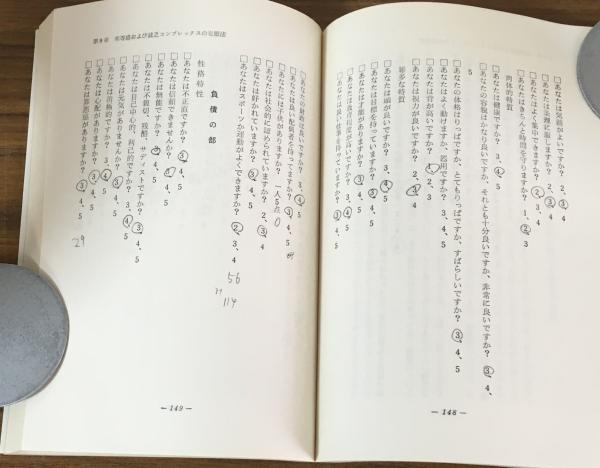 □あなたは気前がよいですか? 2、3、4
□あなたは条理に服しますか? 2、3、4
□あなたはよく集中できますか? 2、3、4
□あなたはきちんと時間を守りますか? 1、2、3
肉体的特質
□あなたは健康ですか? 3、4、5
□あなたの容貌はかなり良いですか、それとも十分良いですか、非常に良いですか? 3、4、
5
□あなたの体格はりっぱですか、とてもりっぱですか、すばらしいですか? 3、4、5
□あなたはよく動けますか、器用ですか? 2、3、4
□あなたは背が高いですか? 1、2、3
□あなたは視力が良いですか? 2、3、4
雑多な特質
□あなたは頭が良いですか? 3、4、5
□あなたは目標を持っていますか? 3、4、5
□あなたは才能がありますか? 3、4、5
□あなたは教育程度が高いですか? 3、4、5
□あなたは良い仕事を持っていますか? 3、4、5
― 148 ―
第9章 劣等感および貧乏コンプレックスの克服法
□あなたの財政は良いですか? 3、4、5
□あなたは良い配偶者を持ってますか? 3、4、5
□あなたには子供がありますか? 一人5点 0
□あなたは社会的に認められていますか? 2、3、4
□あなたは好かれていますか? 3、4、5
□あなたはスポーツか運動がよくできますか? 2、3、4
56
114
負債の部
性格特性
□あなたは不正直ですか? 3、4、5
□あなたは信頼できませんか? 3、4、5
□あなたは無能ですか? 3、4、5
□あなたは不親切、残酷、サディストですか? 3、4、5
□あなたは自己中心的、利己的ですか? 3、4、5
□あなたは元気がありませんか? 3、4、5
□あなたは消極的ですか? 3、4、5
□あなたは心配がありますか? 3、4、5
□あなたは罪悪感がありますか? 3、4、5
29
― 149 ―